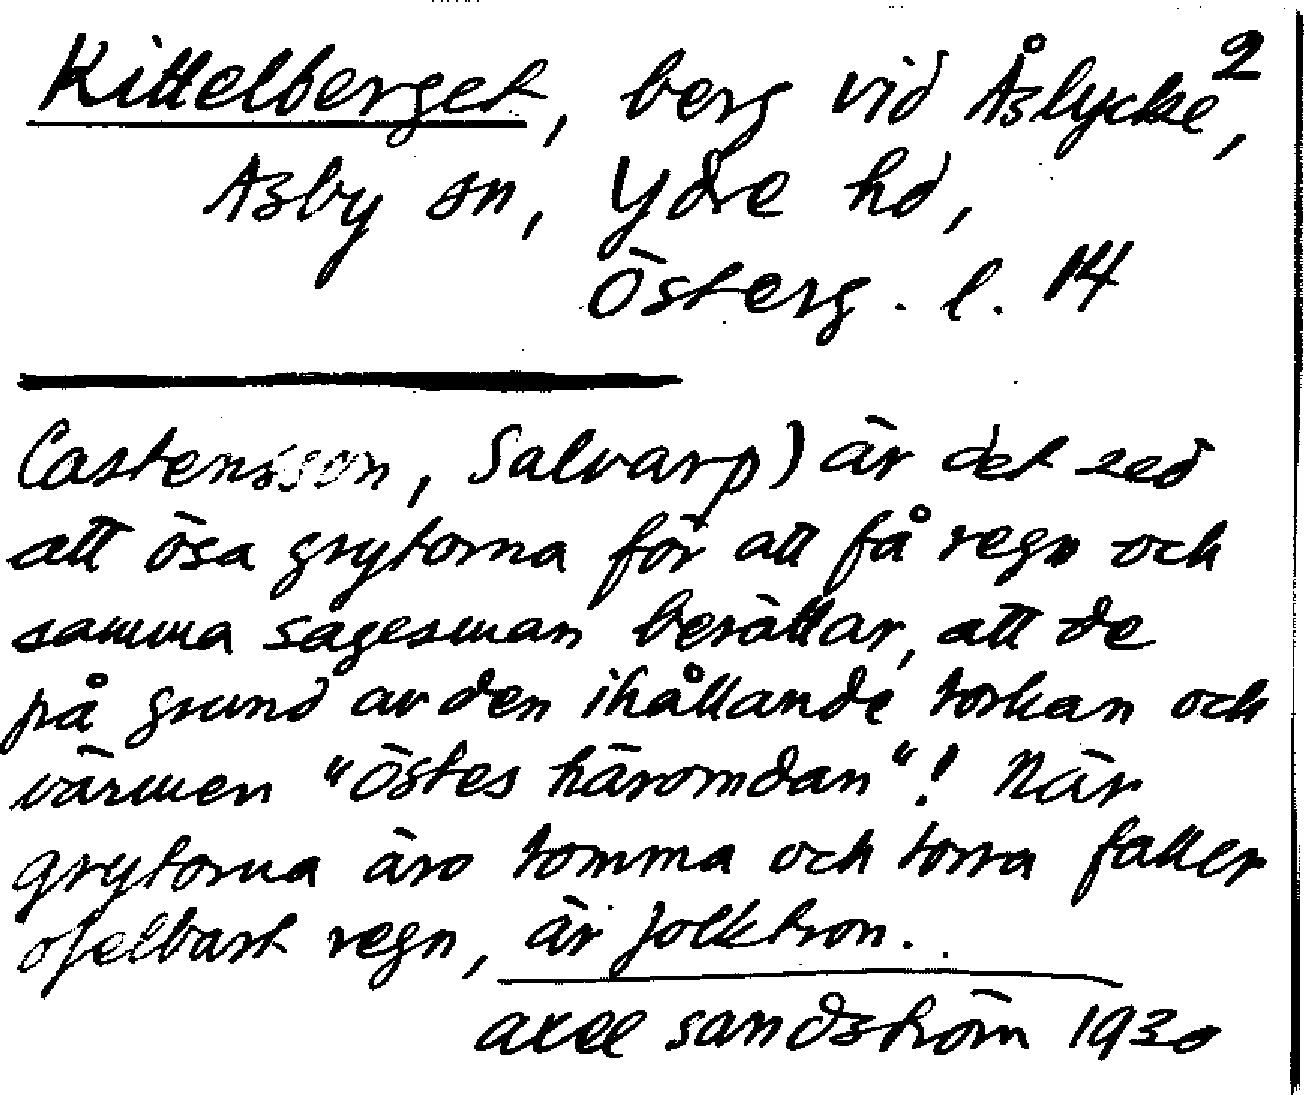 Kittelberget, berg vid Åslycke, 2
Asby sn, Ydre hd,
Österg. l. 14
Castensson, Salvarp) är det sed
att ösa grytorna för att få regn och
samma sagesman berättar, att de
på grund av den ihållande torkan och
värmen "östes häromdan"! När
grytorna äro tomma och torra faller
ofelbart regn, är folktron.
axel sandström 1930